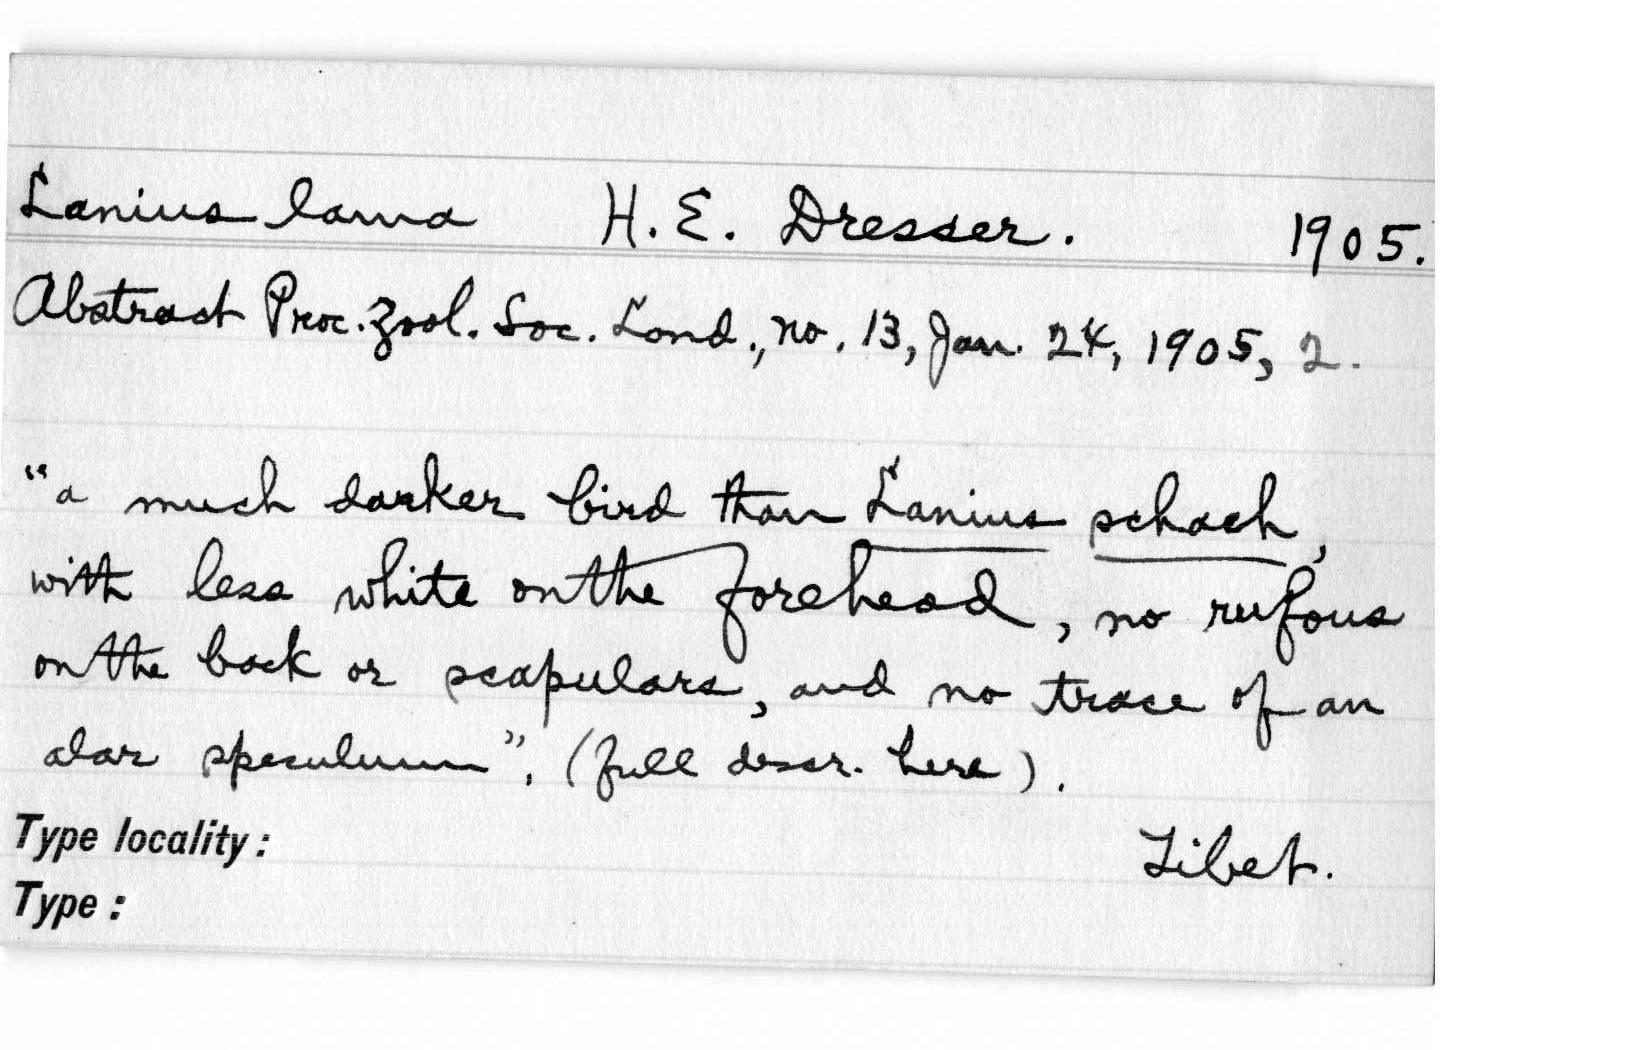 Lanius lama H. E. Dresser. 1905.
Abstract Proc. Zool. Soc. Lond., no. 13, Jan. 24, 1905, 2.
"a much darker bird than Lanius schach,
with less white on the forehead, no rufous
on the back or scapulars, and no trace of an
alar speculum", (full descr. here).
Type locality: Tibet.
Type: